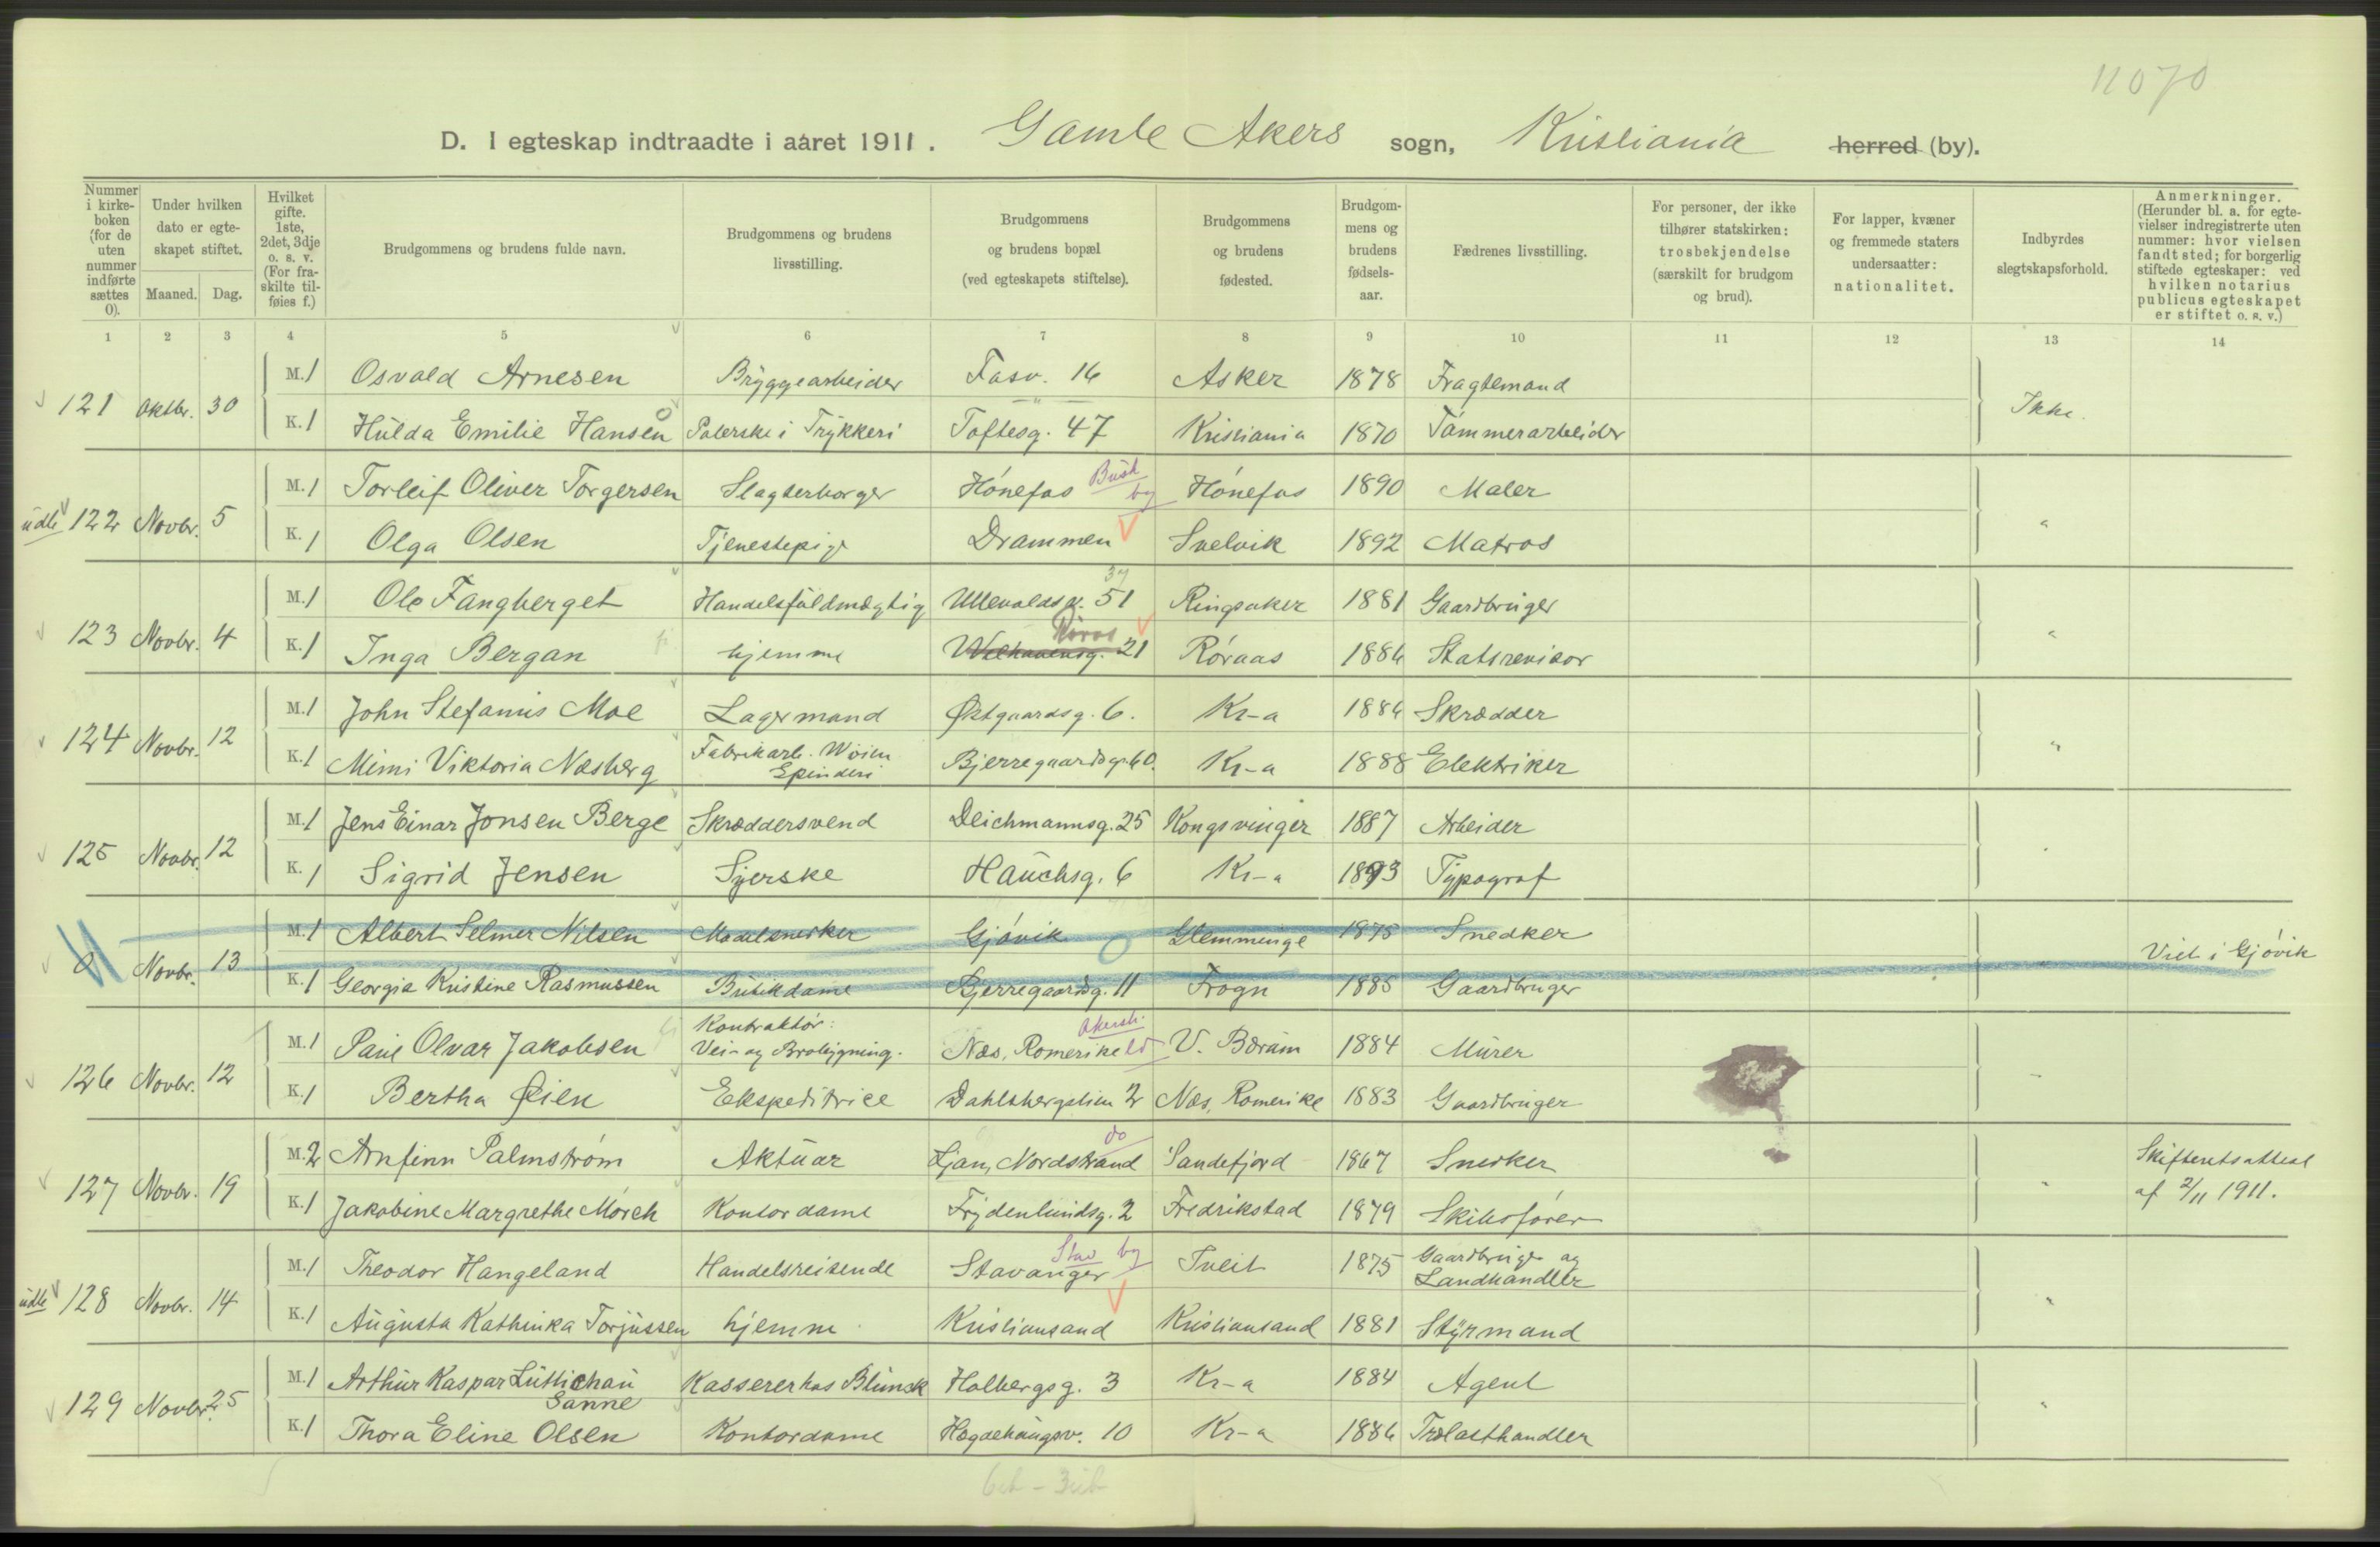 11070
D. I egteskap indtraadte i aaret 1911. Gamle Akers sogn, Kristiania herred (by).
Nummer i kirkeboken (for de uten nummer indførte sættes 0).
Under hvilken dato er egteskapet stiftet.
Maaned. Dag.
Hvilket gifte. 1ste, 2det, 3dje o. s. v. (For fraskilte tilføies f.)
Brudgommens og brudens fulde navn.
Brudgommens og brudens livsstilling.
Brudgommens og brudens bopæl (ved egteskapets stiftelse).
Brudgommens og brudens fødested.
Brudgommens og brudens fødselsaar.
Fædrenes livsstilling.
For personer, der ikke tilhører statskirken: trosbekjendelse (særskilt for brudgom og brud).
For lapper, kvæner og fremmede staters undersaatter: nationalitet.
Indbyrdes slegtskapsforhold.
Anmerkninger. (Herunder bl. a. for egtevielser indregistrerte uten nummer: hvor vielsen fandt sted; for borgerlig stiftede egteskaper: ved hvilken notarius publicus egteskapet er stiftet o. s. v.)
1 2 3 4 5 6 7 8 9 10 11 12 13 14
121 Oktbr. 30 M. 1 Osvald Arnesen Bryggearbeider Fasv. 16 Asker 1878 Fragtemand Ikke.
K. 1 Hulda Emilie Hansen Polerske i Trykkeri Toftesg. 47 Kristiania 1870 Tømmerarbeider
udb 122 Novbr. 5 M. 1 Torleif Oliver Torgersen Slagterborger Hónefos Busk by Hónefos 1890 Maler "
K. 1 Olga Olsen Tjenestepige Drammen Svelvik 1892 Matros
123 Novbr. 4 M. 1 Ole Fangberget Handelsfuldmægtig Ullevoldsv. 51 37 Ringsaker 1881 Gaardbruger "
K. 1 Inga Bergan hjemme Welhavensg. 21 Röros Róraas 1886 Statsrevisor
124 Novbr. 12 M. 1 John Stefanus Moe Lagermand Østgaardsg. 6. Kr-a 1886 Skrædder "
K. 1 Mimi Viktoria Næsberg Fabrikarb. Wøien Spinderi Bjerregaardsg. 60. Kr-a 1888 Elektriker
125 Novbr. 12 M. 1 Jens Einar Jonsen Berge Skræddersvend Deichmannsg. 25 Kongsvinger 1887 Arbeider "
K. 1 Sigrid Jensen Syerske Hauchsg. 6 Kr-a 1893 Typograf
0 Novbr. 13 M. 1 Albert Selmer Nilsen Modelsnedker Gjóvik Glemminge 1875 Snedker Viet i Gjóvik
K. 1 Georgia Kristine Rasmussen Butikdame Bjerregaardsg. 11 Frogn 1885 Gaardbruger
126 Novbr. 12 M. 1 Paul Olvar Jakobsen Kontraktør: Vei- og Brobygning. Næs, Romerike Akersh. ld V. Bærum 1884 Murer "
K. 1 Bertha Øien Ekspeditrice Dahlsbergstien 2 Næs, Romerike 1883 Gaardbruger
127 Novbr. 19 M. 2 Arnfinn Palmstróm Aktuar Ljan, Nordstrand do Sandefjord 1867 Snedker " Skifteretsattest
K. 1 Jakobine Margrethe Mórch Kontordame Frydenlundsg. 2 Fredrikstad 1879 Skibsfører af 2/11 1911.
udb 128 Novbr. 14 M. 1 Theodor Hangeland Handelsreisende Stavanger Stav by Tveit 1875 Gaardbruger og Landhandler "
K. 1 Augusta Kathinka Torjussen hjemme Kristiansand Kristiansand 1881 Styrmand
129 Novbr. 25 M. 1 Arthur Kaspar Lüttichau Sanne Kasserer hos Blunck Holbergsg. 3 Kr-a 1884 Agent "
K. 1 Thora Eline Olsen Kontordame Hegdehaugsv. 10 Kr-a 1886 Trælasthandler